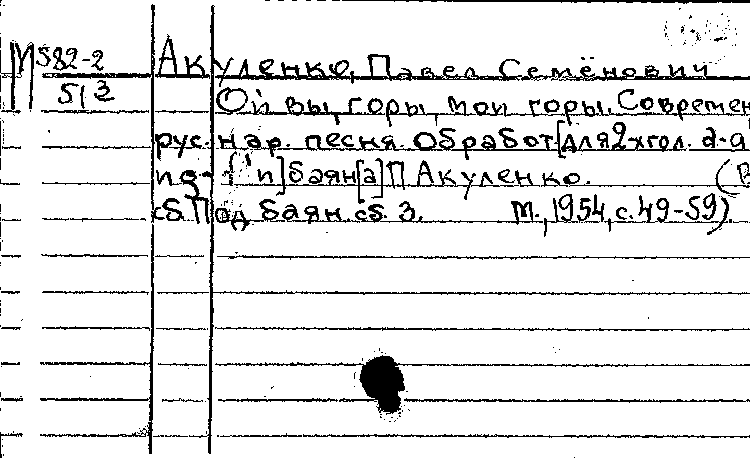 М582-2
513
Акуленко, Павел Семёнович
Ой вы, горы, мои горы. Современ
рус. нар. песня. Обработ[для 2-хгол. d-a
баян[а] П Акуленко. (В
сб. Под баян. сб. 3. М., 1954, с. 49-59).